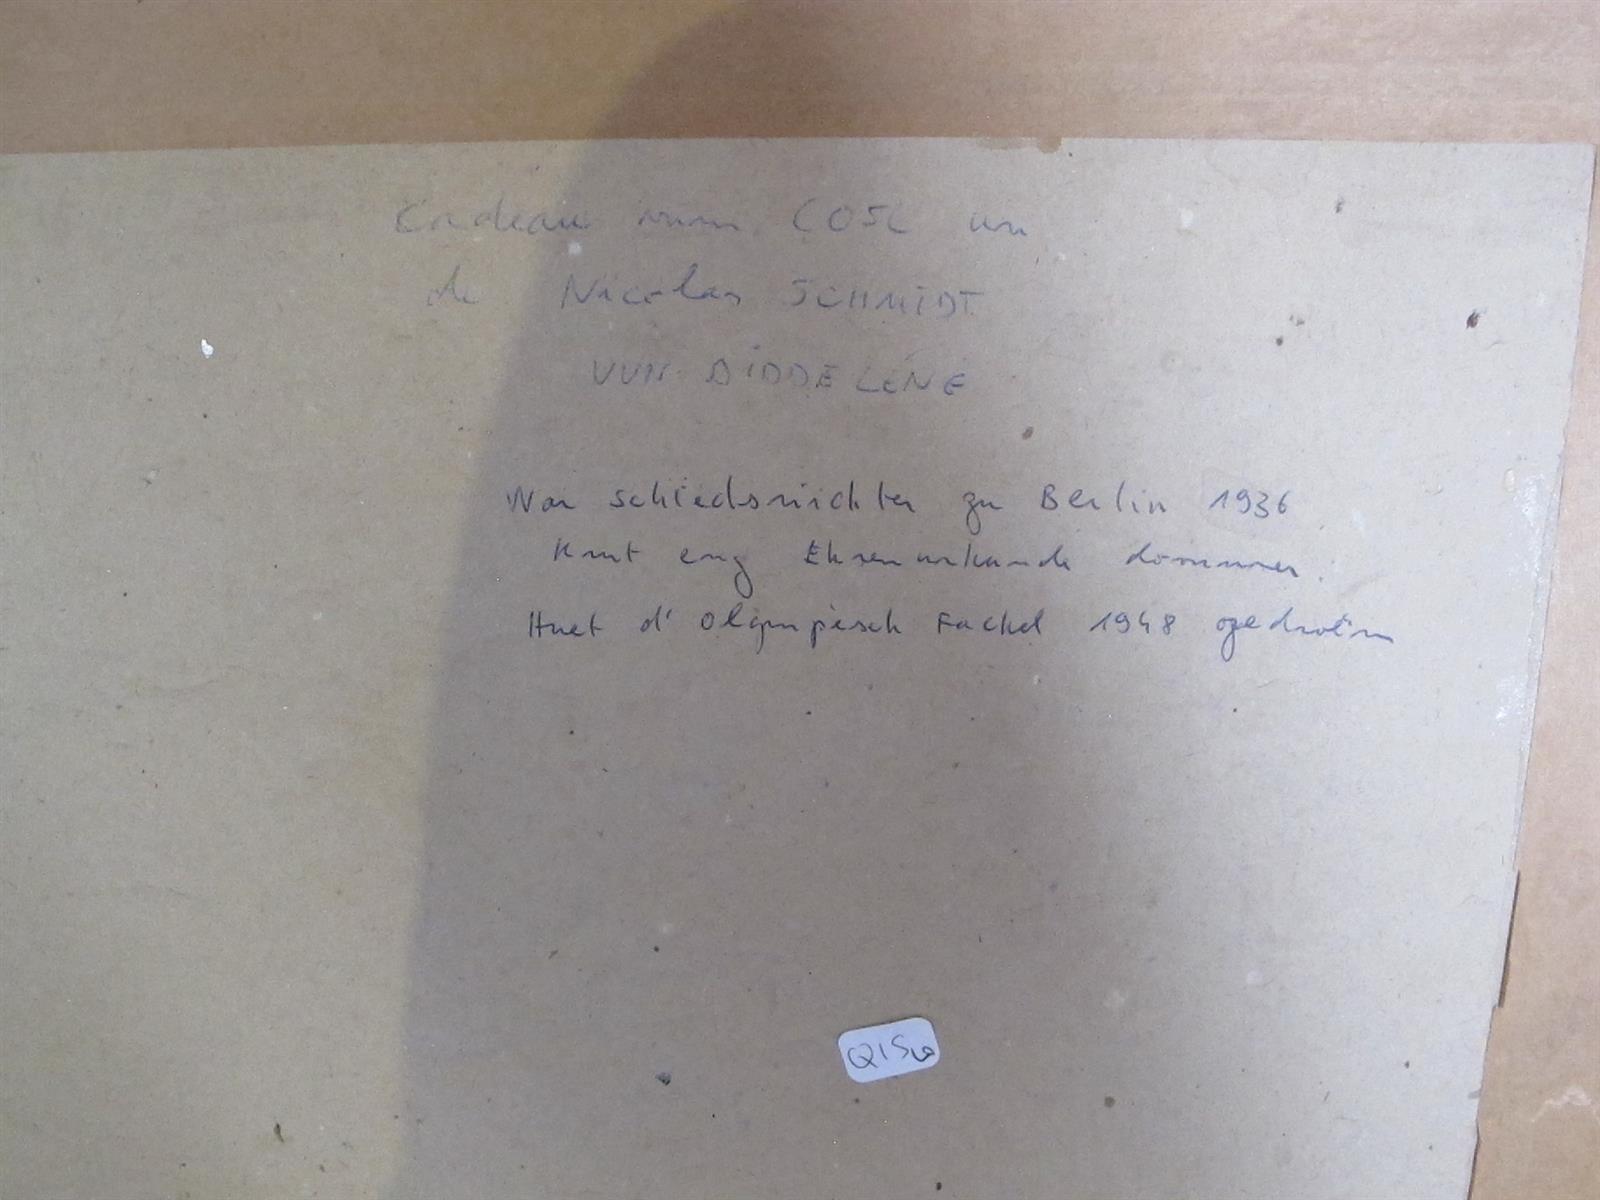 Cadeau vum COSL un
de Nicolas SCHMIDT
VUN DIDDELENG
War schiedsrichter zu Berlin 1936
Krut eng Ehrenurkunde
Huet d' olympesch Fackel 1948 gedroën